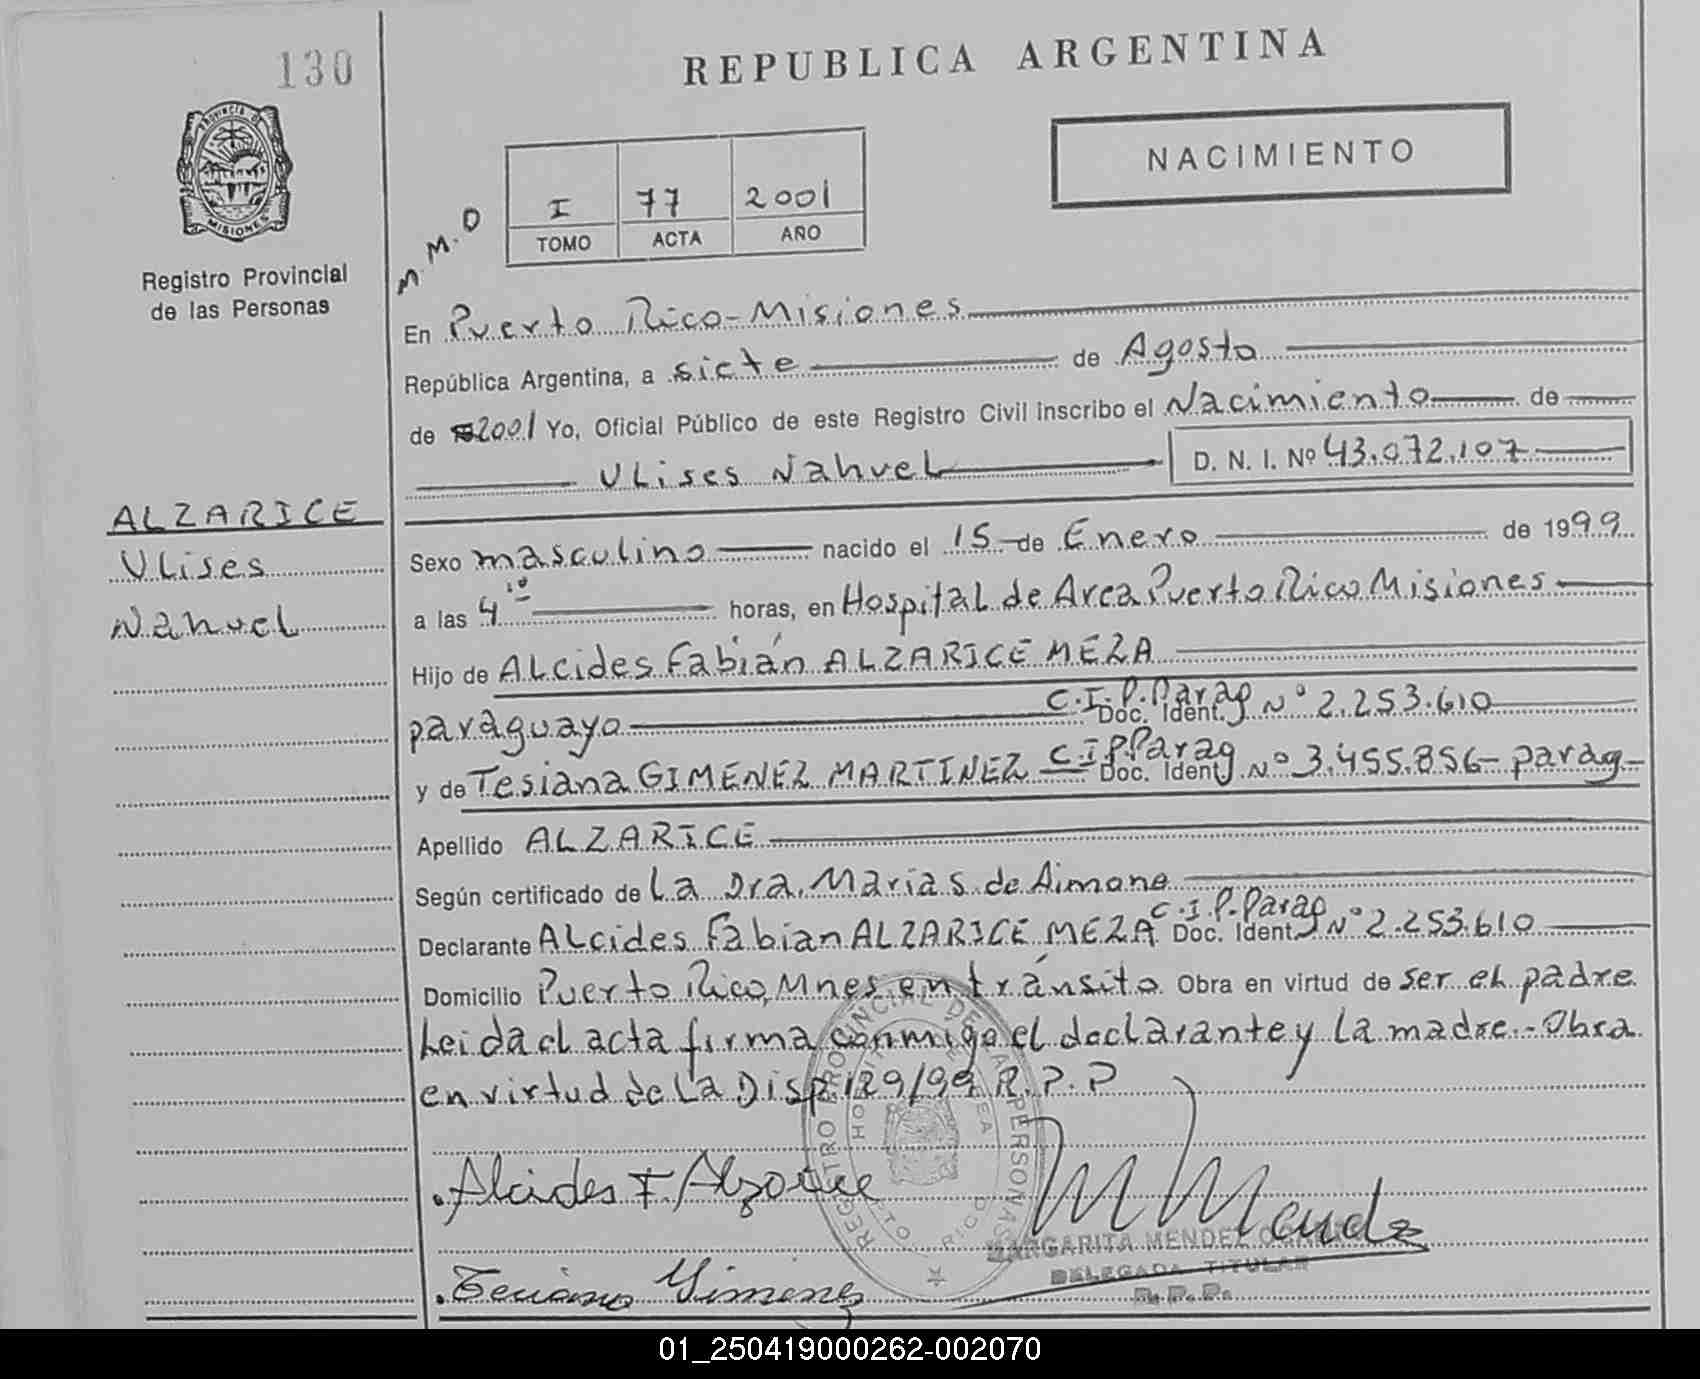 130
REPUBLICA ARGENTINA
PROVINCIA DE
MISIONES
Registro Provincial
de las Personas
NACIMIENTO
I 77 2001
TOMO ACTA AÑO
M. M. O
En Puerto Rico - Misiones
República Argentina, a siete de Agosto
de 2001 Yo, Oficial Público de este Registro Civil inscribo el Nacimiento de
Ulises Nahuel D. N. I. Nº 43.072.107
ALZARICE
Ulises
Nahuel
Sexo masculino nacido el 15 de Enero de 1999
a las 4 10 horas, en Hospital de Area Puerto Rico Misiones
Hijo de Alcides Fabián ALZARICE MEZA
paraguayo C.I.P. Parag Doc. Ident. Nº 2.253.610
y de Tesiana GIMENEZ MARTINEZ C.I.P. Parag Doc. Ident. Nº 3.455.856 - parag-
Apellido ALZARICE
Según certificado de La Dra. Marias de Aimone
Declarante Alcides Fabian ALZARICE MEZA C.I.P. Parag Doc. Ident. Nº 2.253.610
Domicilio Puerto Rico, Mnes en tránsito Obra en virtud de ser el padre
Leida el acta firma conmigo el declarante y La madre.- Obra
en virtud de La Disp 129/99 R.P.P
REGISTRO PROVINCIAL DE LAS PERSONAS
RICO
Alcides F Alzarice
M Mendez
MARGARITA MENDEZ
DELEGADA TITULAR
R. P. P.
Gimenez
01_250419000262-002070